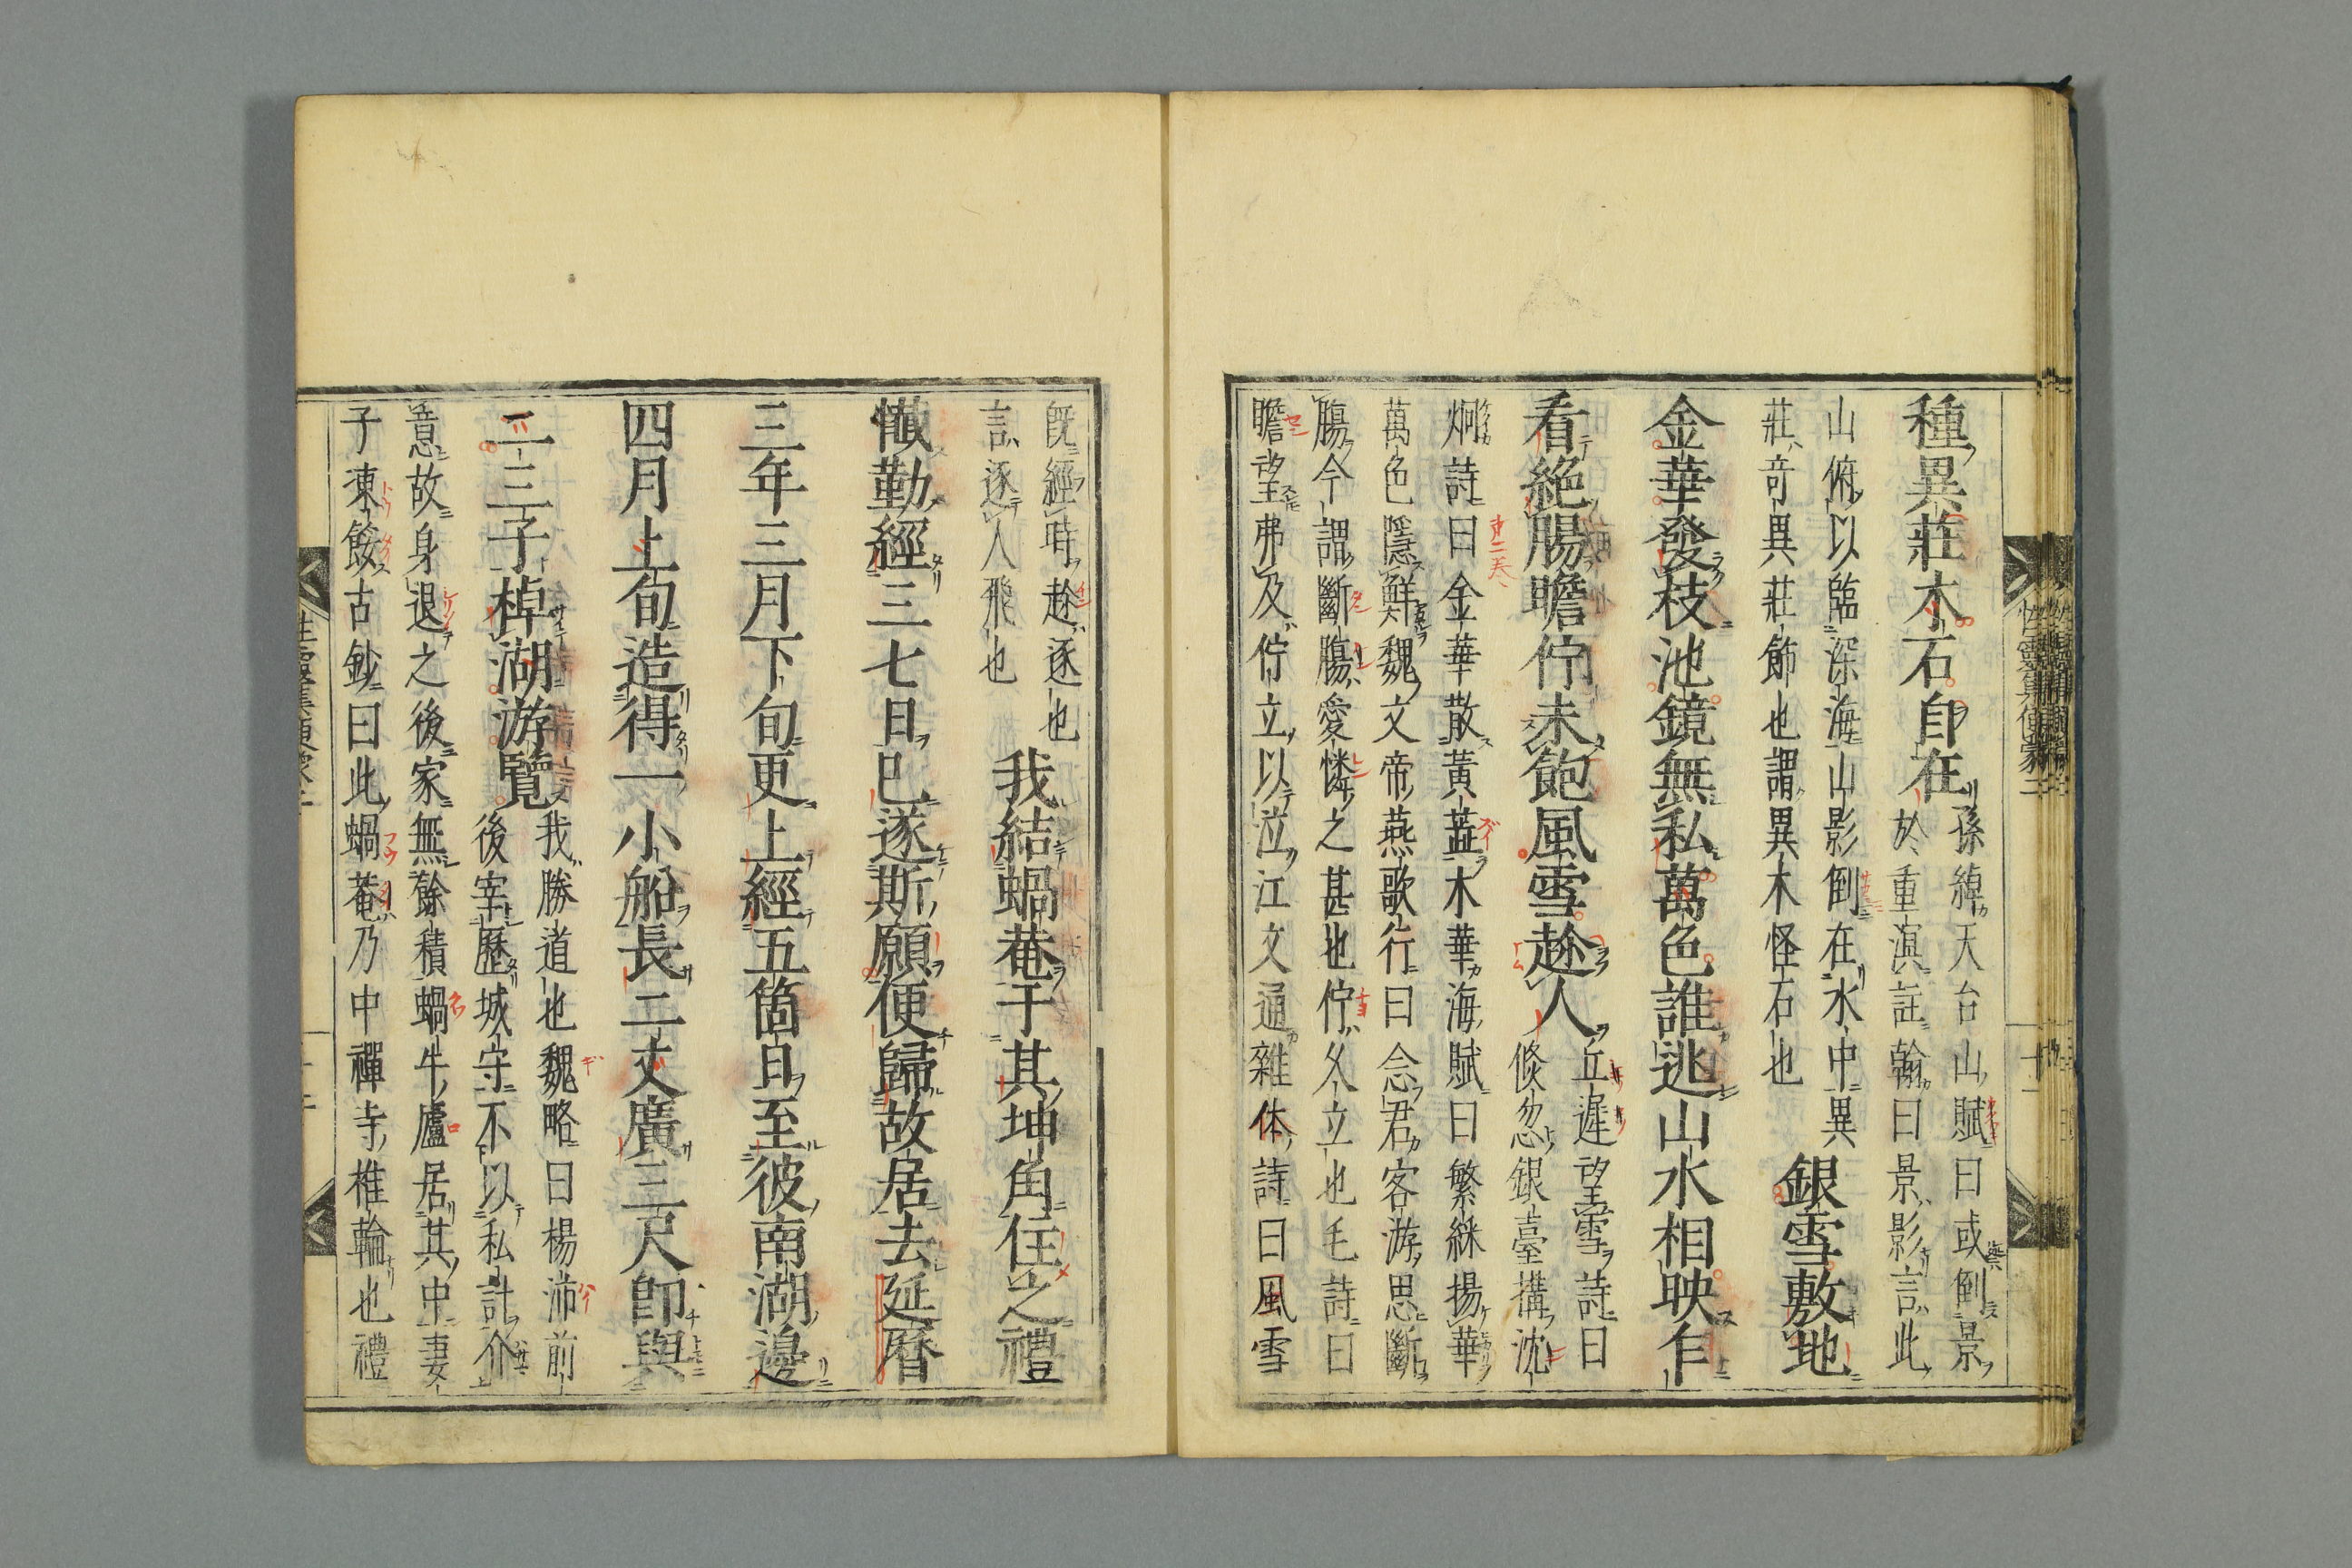 種異莊木石自在
孫綽天台山賦曰或倒景
於重溟註翰曰景影言此
山俯以臨深海山影倒在水中異
莊奇異莊飾也謂異木怪石也
銀雪敷地
金華發枝池鏡無私萬色誰逃山水相映乍
看絶腸瞻佇未飽風雪趁人
丘遲望雪詩曰
倐忽銀臺搆沈
炯詩曰金華散黃蘂木華海賦曰繁綵揚華
萬色隱鮮魏文帝燕歌行曰念君客游思斷
膓今謂斷膓愛憐之甚也佇久立也毛詩曰
瞻望弗及佇立以泣江文通雜体詩曰風雪
既經時趁逐也
言逐人飛也
我結蝸菴于其坤角住之禮
懺勤經三七日已遂斯願便歸故居去延曆
三年三月下旬更上經五箇日至彼南湖邊
四月上旬造得一小船長二丈廣三尺即與
二三子棹湖游覽
我勝道也魏略曰楊沛前
後宰歷城守不以私計介
意故身退之後家無餘積蝸牛廬居其中妻
子凍餒古鈔曰此蝸菴乃中禪寺椎輪也禮